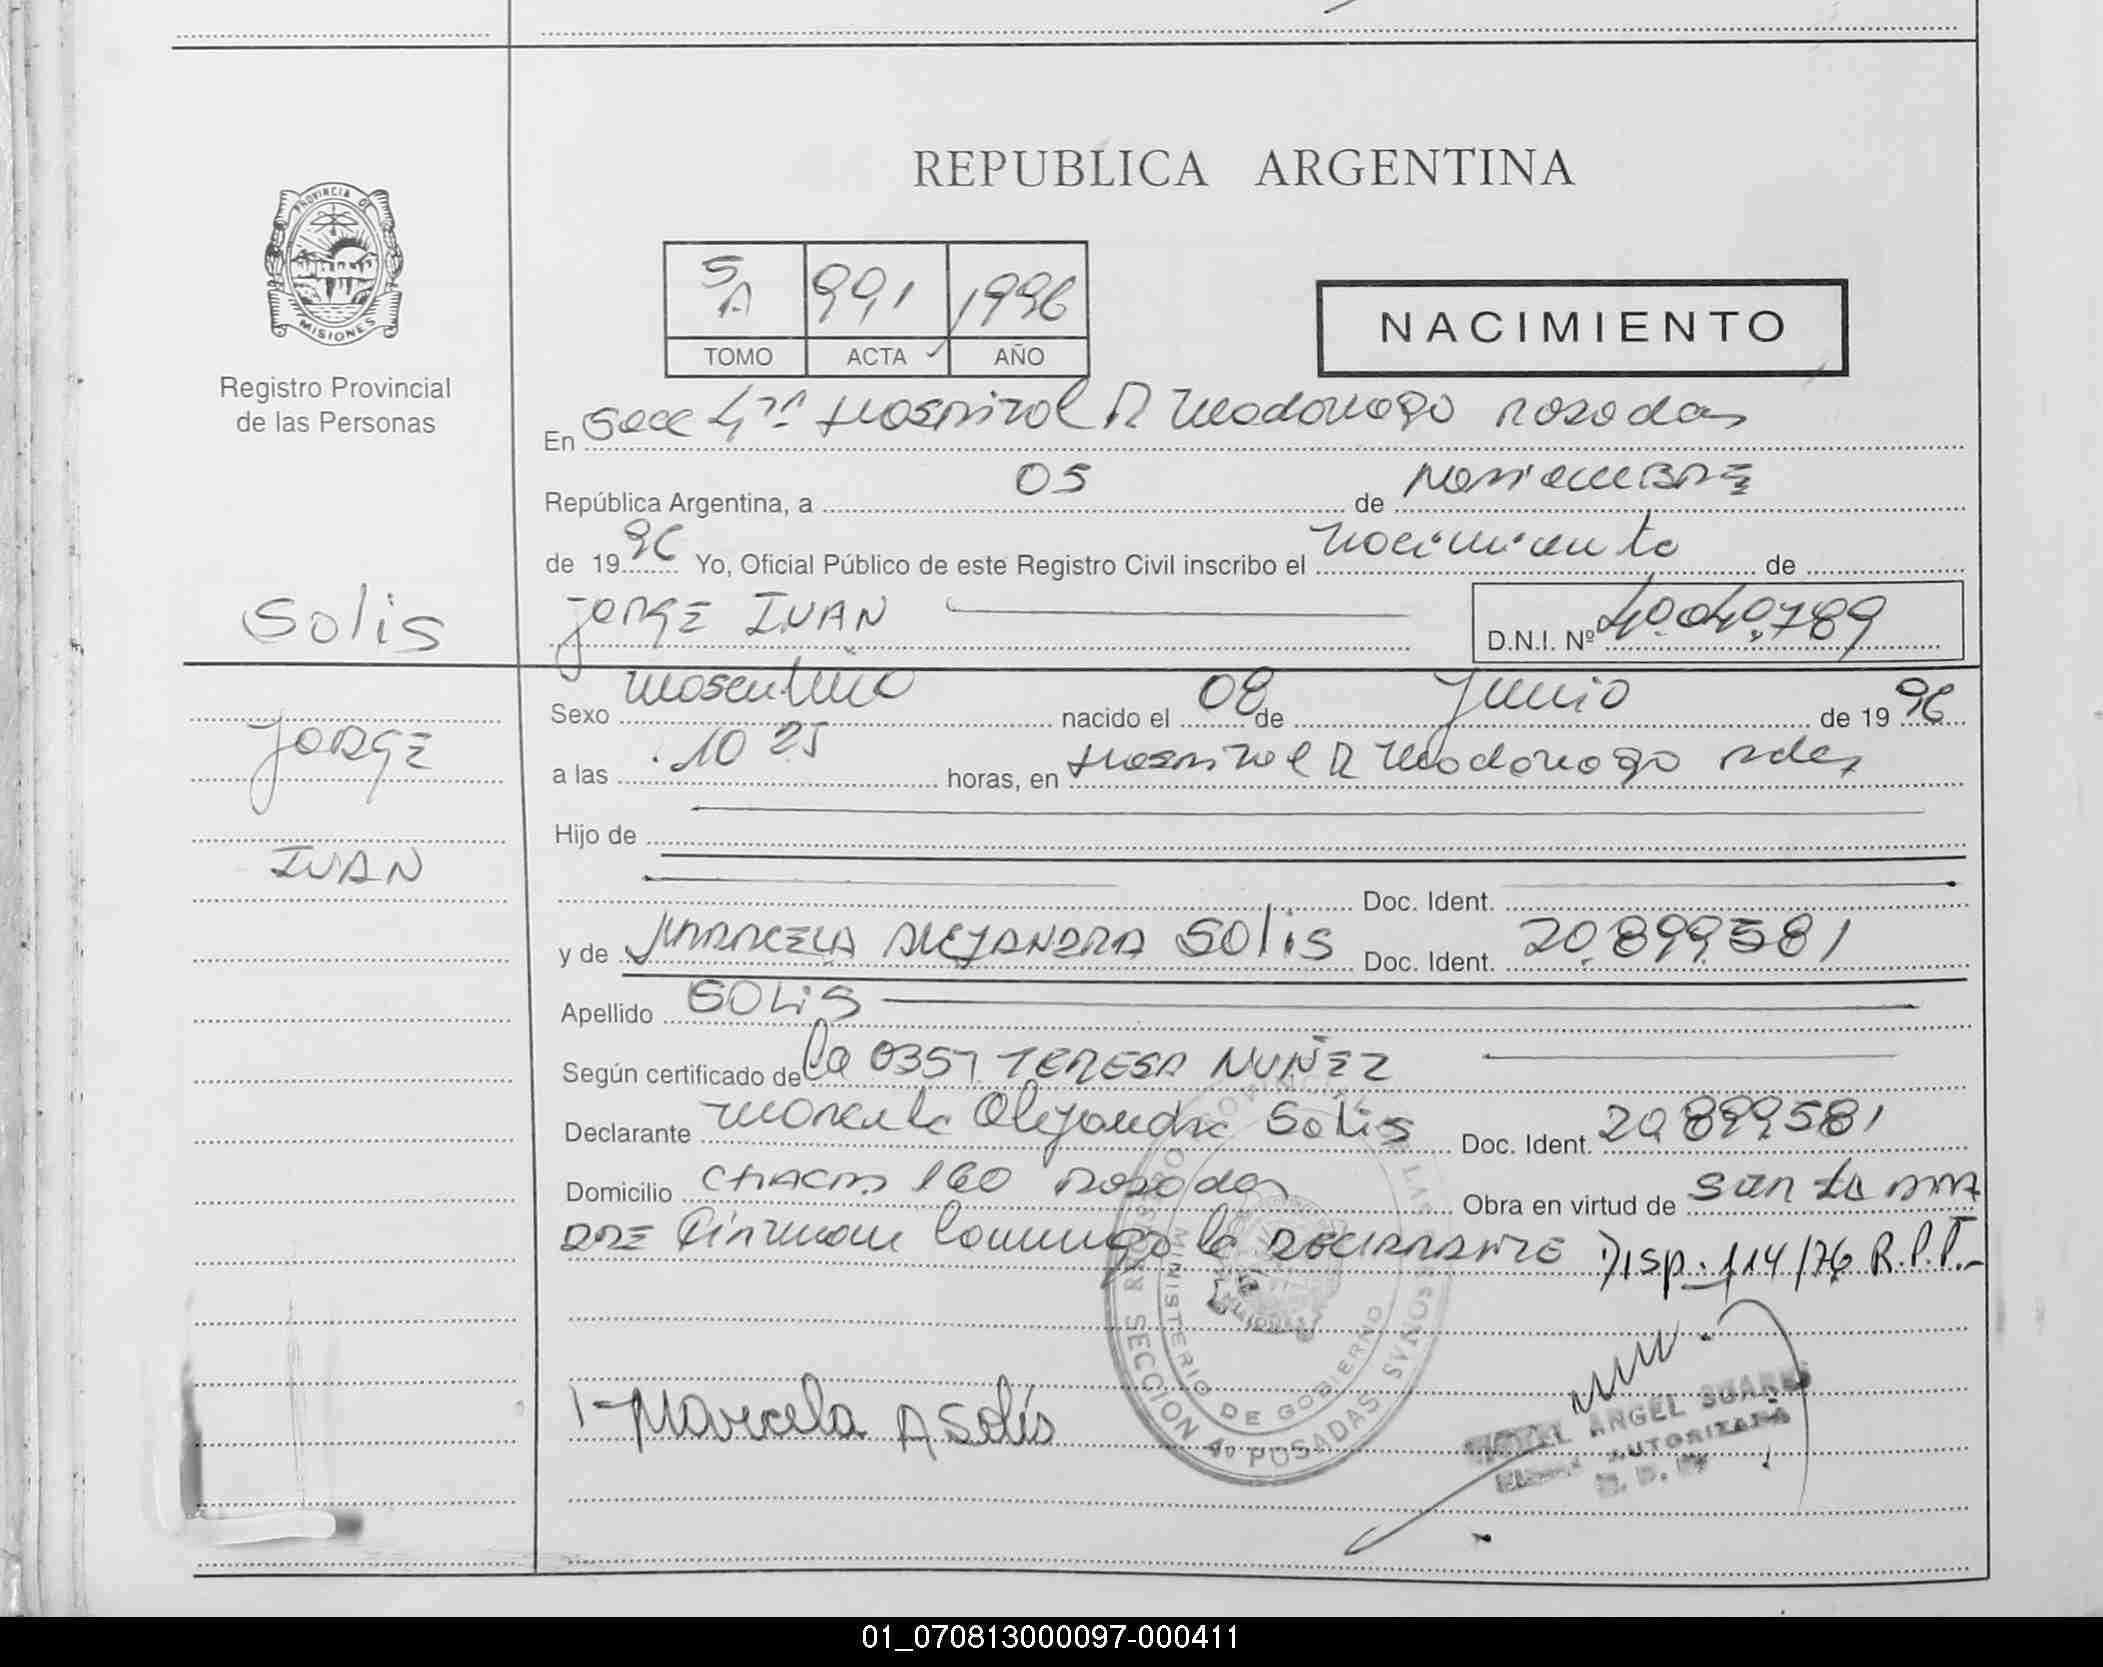 REPUBLICA ARGENTINA
PROVINCIA DE
MISIONES
Registro Provincial
de las Personas
5
A 991 1996
TOMO ACTA AÑO
NACIMIENTO
En Secc 4ta Hospital R Madariaga Posadas
República Argentina, a 05 de Noviembre
de 1996 Yo, Oficial Público de este Registro Civil inscribo el Nacimiento de
Solis
JORGE IVAN
D.N.I. Nº 40.040.789
Sexo masculino nacido el 08 de Junio de 1996
JORGE
a las 10 25 horas, en Hospital R Madariaga Pdas
Hijo de
IVAN
Doc. Ident.
y de MARCELA ALEJANDRA SOLIS Doc. Ident. 20.899.581
Apellido SOLIS
Según certificado de la 0357 TERESA NUÑEZ
Declarante Marcela Alejandra Solis Doc. Ident. 20.899.581
Domicilio CHACRA 160 Posadas Obra en virtud de ser la MA
DRE Firman conmigo la DECLARANTE Disp. 114/76 R.P.P.-
1- Marcela A Solis
SECCION 4º POSADAS
MINISTERIO DE GOBIERNO
ANGEL SUAREZ
AUTORIZADA
01_070813000097-000411